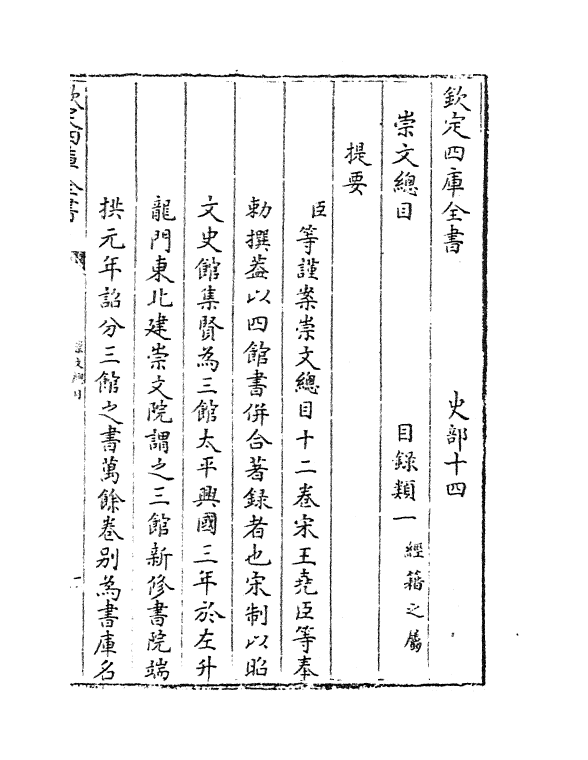 欽定四庫全書 史部十四
崇文總目 目録類一 經籍之屬
提要
臣等謹案崇文總目十二卷宋王堯臣等奉
勅撰葢以四館書併合著録者也宋制以昭
文史館集賢為三館太平興國三年於左升
龍門東北建崇文院謂之三館新修書院端
拱元年詔分三館之書萬餘卷别為書庫名
欽定四庫全書
崇文總目
一